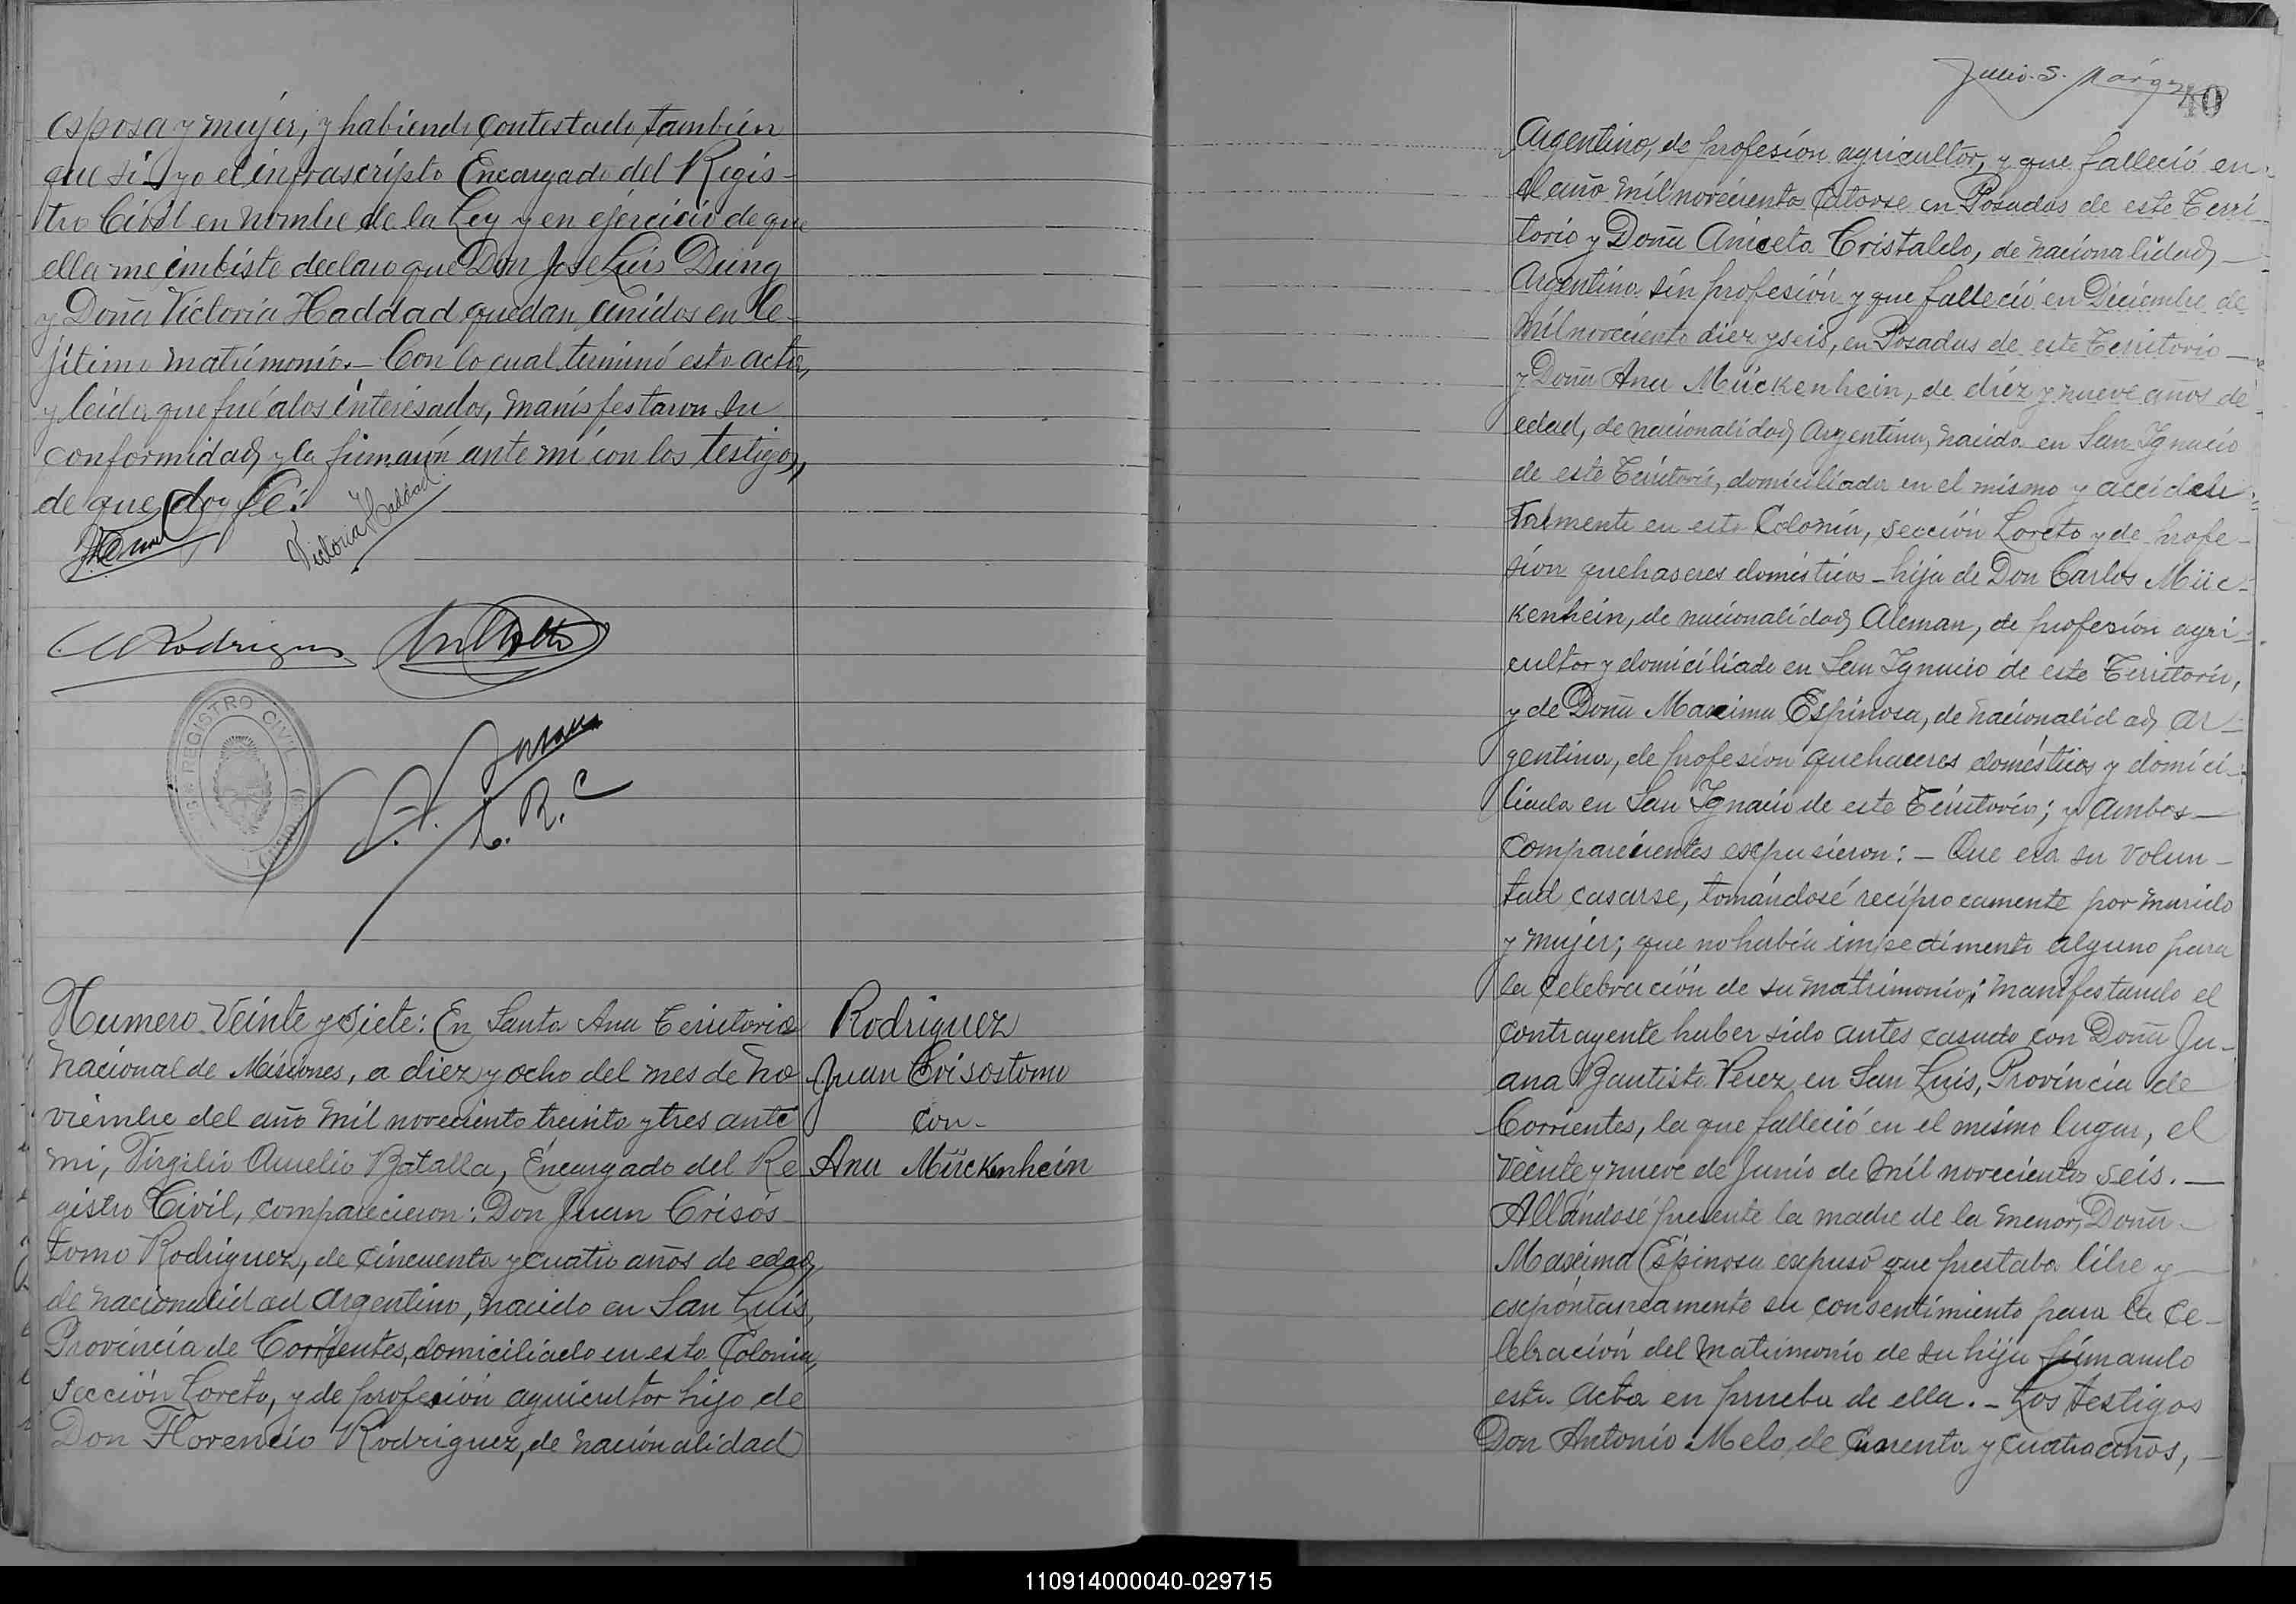 esposa y mujer, y habiendo contestado tambien
que si, yo el infrascripto Encargado del Regis-
tro Civil en nombre de la Ley y en ejercicio de que
ella me imbiste declaro que Don Jose Luis Dung
y Doña Victoria Haddad quedan unidos en le-
jitimo matrimonio.- Con lo cual terminó esta acta,
y leida que fué a los interesados, manisfestaron su
conformidad, y la firmarón ante mi con los testigos,
de que doy fé:
Victoria Haddad
Rodrigues
REGISTRO CIVIL
E. R. C
Numero Veinte y siete: En Santa Ana Territorio
nacional de Misiones, a diez y ocho del mes de no
viembre del año mil noveciento treinta y tres ante
mi, Virgilio Aurelio Batalla, Encargado del Re
gistro Civil, comparecieron: Don Juan Crisós-
tomo Rodriguez, de cincuenta y cuatro años de edad,
de nacionalidad argentino, nacido en San Luis,
Provincia de Corrientes, domiciliado en esta Colonia,
sección Loreto, y de profesión agricultor hijo de
Don Florencio Rodriguez, de nacionalidad
Rodriguez
Juan Crisostomo
con-
Ana Mückenhein
Julio S.
40
Argentino, de profesión agricultor, y que falleció en
el año mil novecientos catorse en Posadas de este Terri-
torio y Doña Aniceta Cristaldo, de nacionalidad
Argentina sin profesión y que falleció en Diciembre de
mil noveciento diez y seis, en Posadas de este Territorio
y Doña Ana Mückenhein, de diez y nueve años de
edad, de nacionalidad Argentina, nacida en San Ignacio
de este Territorio, domiciliada en el mismo y acciden-
talmente en esta Colonia, sección Loreto y de profe-
sión quehaseres domésticos - hija de Don Carlos Müc-
kenhein, de nacionalidad Aleman, de profesión agri-
cultor y domiciliado en San Ignacio de este Territorio,
y de Doña Maxima Espinosa, de nacionalidad, Ar-
gentina, de profesión quehaceres domésticos y domici-
liada en San Ignacio de este Territorio; y ambos
comparecientes expusieron: - Que era su volun-
tad casarse, tomándosé recíprocamente por marido
y mujer; que no había impedimento alguno para
la celebración de su matrimonio; manifestando el
contrayente haber sido antes casado con Doña Ju-
ana Bautista Perez en San Luis, Provincia de
Corrientes, la que falleció en el mismo lugar, el
veinte y nueve de Junio de mil novecientos seis.-
Allándosé presente la madre de la menor, Doña
Maxima Espinosa expusó que prestaba libre y
expontaneamente su consentimiento para la ce-
lebración del matrimonio de su hija firmando
esta acta en prueba de ella.- Los testigos
Don Antonio Melo, de cuarenta y cuatro años,